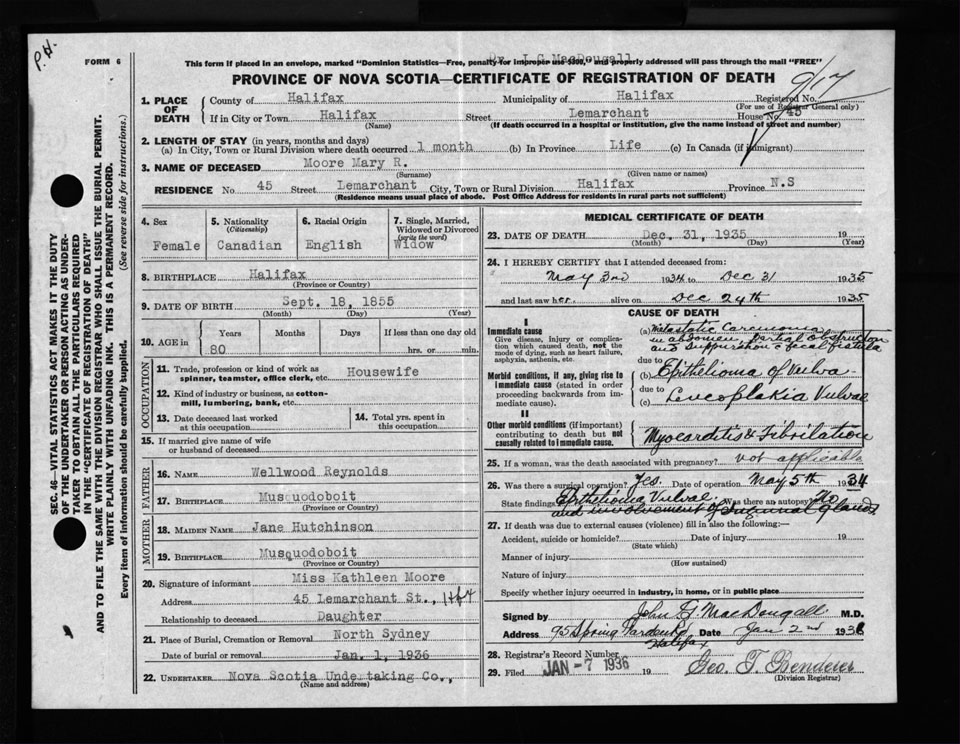 P.H.
FORM 6
Dr. J G MacDougall
This form if placed in an envelope, marked "Dominion Statistics—Free, penalty for improper use $300," and properly addressed will pass through the mail "FREE"
PROVINCE OF NOVA SCOTIA—CERTIFICATE OF REGISTRATION OF DEATH
917
1. PLACE OF DEATH County of Halifax Municipality of Halifax Registered No.
(For use of Registrar General only)
If in City or Town Halifax Street Lemarchant House No. 45
(Name) (If death occurred in a hospital or institution, give the name instead of street and number)
2. LENGTH OF STAY (in years, months and days)
(a) In City, Town or Rural Division where death occurred 1 month (b) In Province Life (c) In Canada (if immigrant)
3. NAME OF DECEASED Moore Mary R.
(Surname) (Given name or names)
RESIDENCE No 45 Street Lemarchant City, Town or Rural Division Halifax Province N.S
(Residence means usual place of abode. Post Office Address for residents in rural parts not sufficient)
4. Sex Female
5. Nationality (Citizenship) Canadian
6. Racial Origin English
7. Single, Married, Widowed or Divorced (write the word) Widow
8. BIRTHPLACE Halifax
(Province or Country)
9. DATE OF BIRTH Sept. 18, 1855
(Month) (Day) (Year)
10. AGE in Years Months Days If less than one day old
80 hrs. or min.
OCCUPATION
11. Trade, profession or kind of work as spinner, teamster, office clerk, etc. Housewife
12. Kind of industry or business, as cotton-mill, lumbering, bank, etc.
13. Date deceased last worked at this occupation
14. Total yrs. spent in this occupation
15. If married give name of wife or husband of deceased
FATHER
16. NAME Wellwood Reynolds
17. BIRTHPLACE Musquodoboit
(Province or Country)
MOTHER
18. MAIDEN NAME Jane Hutchinson
19. BIRTHPLACE Musquodoboit
(Province or Country)
20. Signature of informant Miss Kathleen Moore
Address 45 Lemarchant St., Hfx
Relationship to deceased Daughter
21. Place of Burial, Cremation or Removal North Sydney
Date of burial or removal Jan. 1, 1936
22. UNDERTAKER Nova Scotia Undertaking Co.,
(Name and address)
MEDICAL CERTIFICATE OF DEATH
23. DATE OF DEATH Dec. 31, 1935 19
(Month) (Day) (Year)
24. I HEREBY CERTIFY that I attended deceased from:
May 3rd 1934 to Dec 31 1935
and last saw her alive on Dec 24th 1935
CAUSE OF DEATH
I
Immediate cause
Give disease, injury or complication which caused death, not the mode of dying, such as heart failure, asphyxia, asthenia, etc.
(a) Metastatic Carcinoma
in abdomen, partial obstruction
and suppuration & fecal fistula
due to
Morbid conditions, if any, giving rise to immediate cause (stated in order proceeding backwards from immediate cause).
(b) Epithelioma of Vulva
due to
(c) Leucoplakia Vulvae
II
Other morbid conditions (if important) contributing to death but not causally related to immediate cause.
Myocarditis & Fibrilation
25. If a woman, was the death associated with pregnancy? not applicable
26. Was there a surgical operation? Yes. Date of operation May 5th 1934
State findings Epithelioma Vulvae Was there an autopsy? No
and involvement of Inguinal Glands.
27. If death was due to external causes (violence) fill in also the following:—
Accident, suicide or homicide? Date of injury 19
(State which)
Manner of injury
(How sustained)
Nature of injury
Specify whether injury occurred in industry, in home, or in public place
Signed by John G. MacDougall M.D.
Address 95 Spring Garden Rd Date Jan 2nd 1936
Halifax
28. Registrar's Record Number
29. Filed JAN -7 1936 19
(Division Registrar)
SEC. 46—VITAL STATISTICS ACT MAKES IT THE DUTY
OF THE UNDERTAKER OR PERSON ACTING AS UNDER-
TAKER TO OBTAIN ALL THE PARTICULARS REQUIRED
IN THE "CERTIFICATE OF REGISTRATION OF DEATH"
AND TO FILE THE SAME WITH THE DIVISION REGISTRAR WHO SHALL ISSUE THE BURIAL PERMIT.
WRITE PLAINLY WITH UNFADING INK. THIS IS A PERMANENT RECORD.
Every item of information should be carefully supplied. (See reverse side for instructions.)